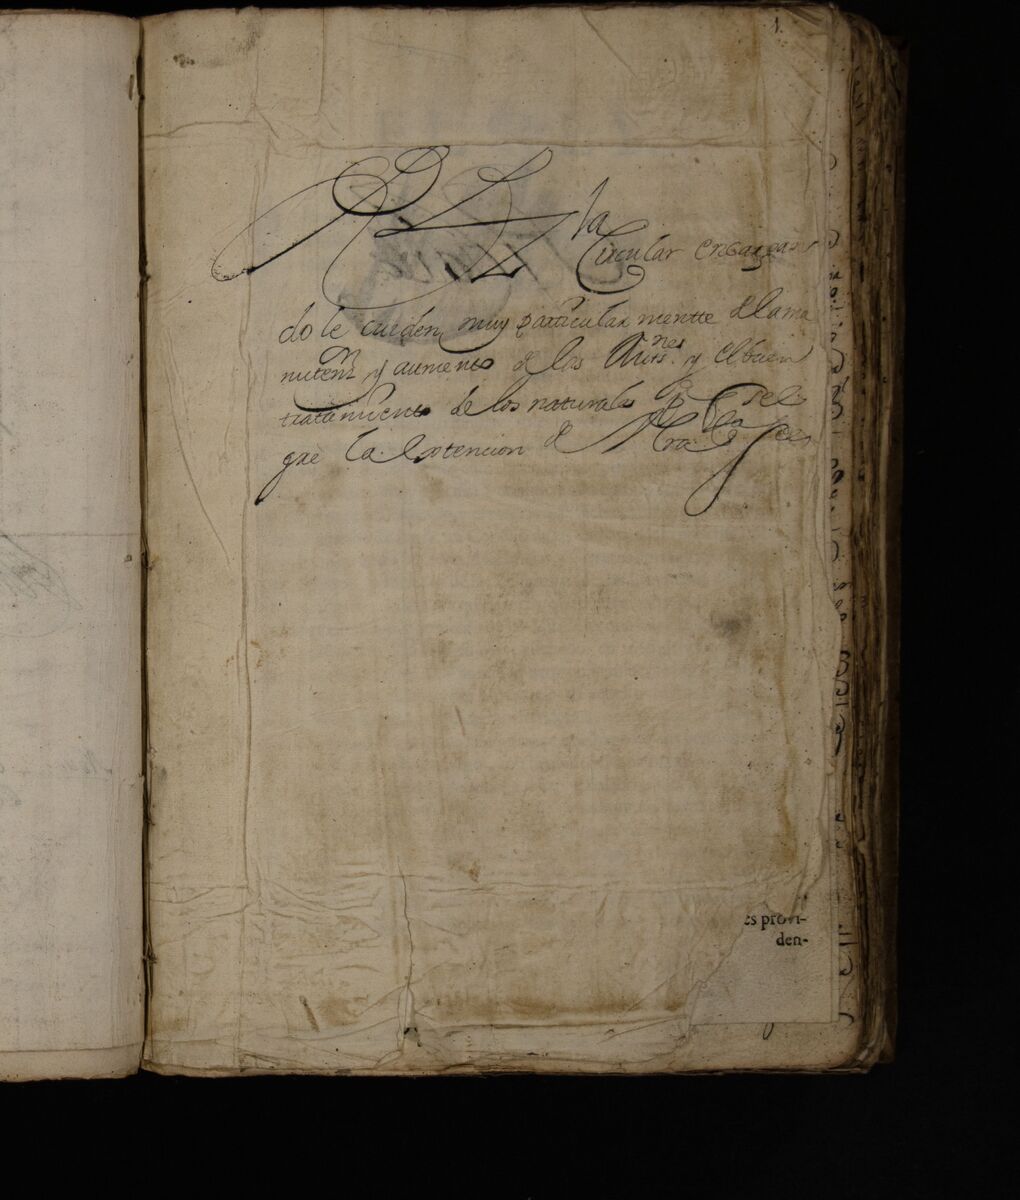 1.
R. Z.la Circular encargan
dole cuiden muy particularmentte de la ma
nutenn y aumento de los Mins.nes y el buen
tratamiento de los naturales
que la extencion de Ntra
es provi-
den-